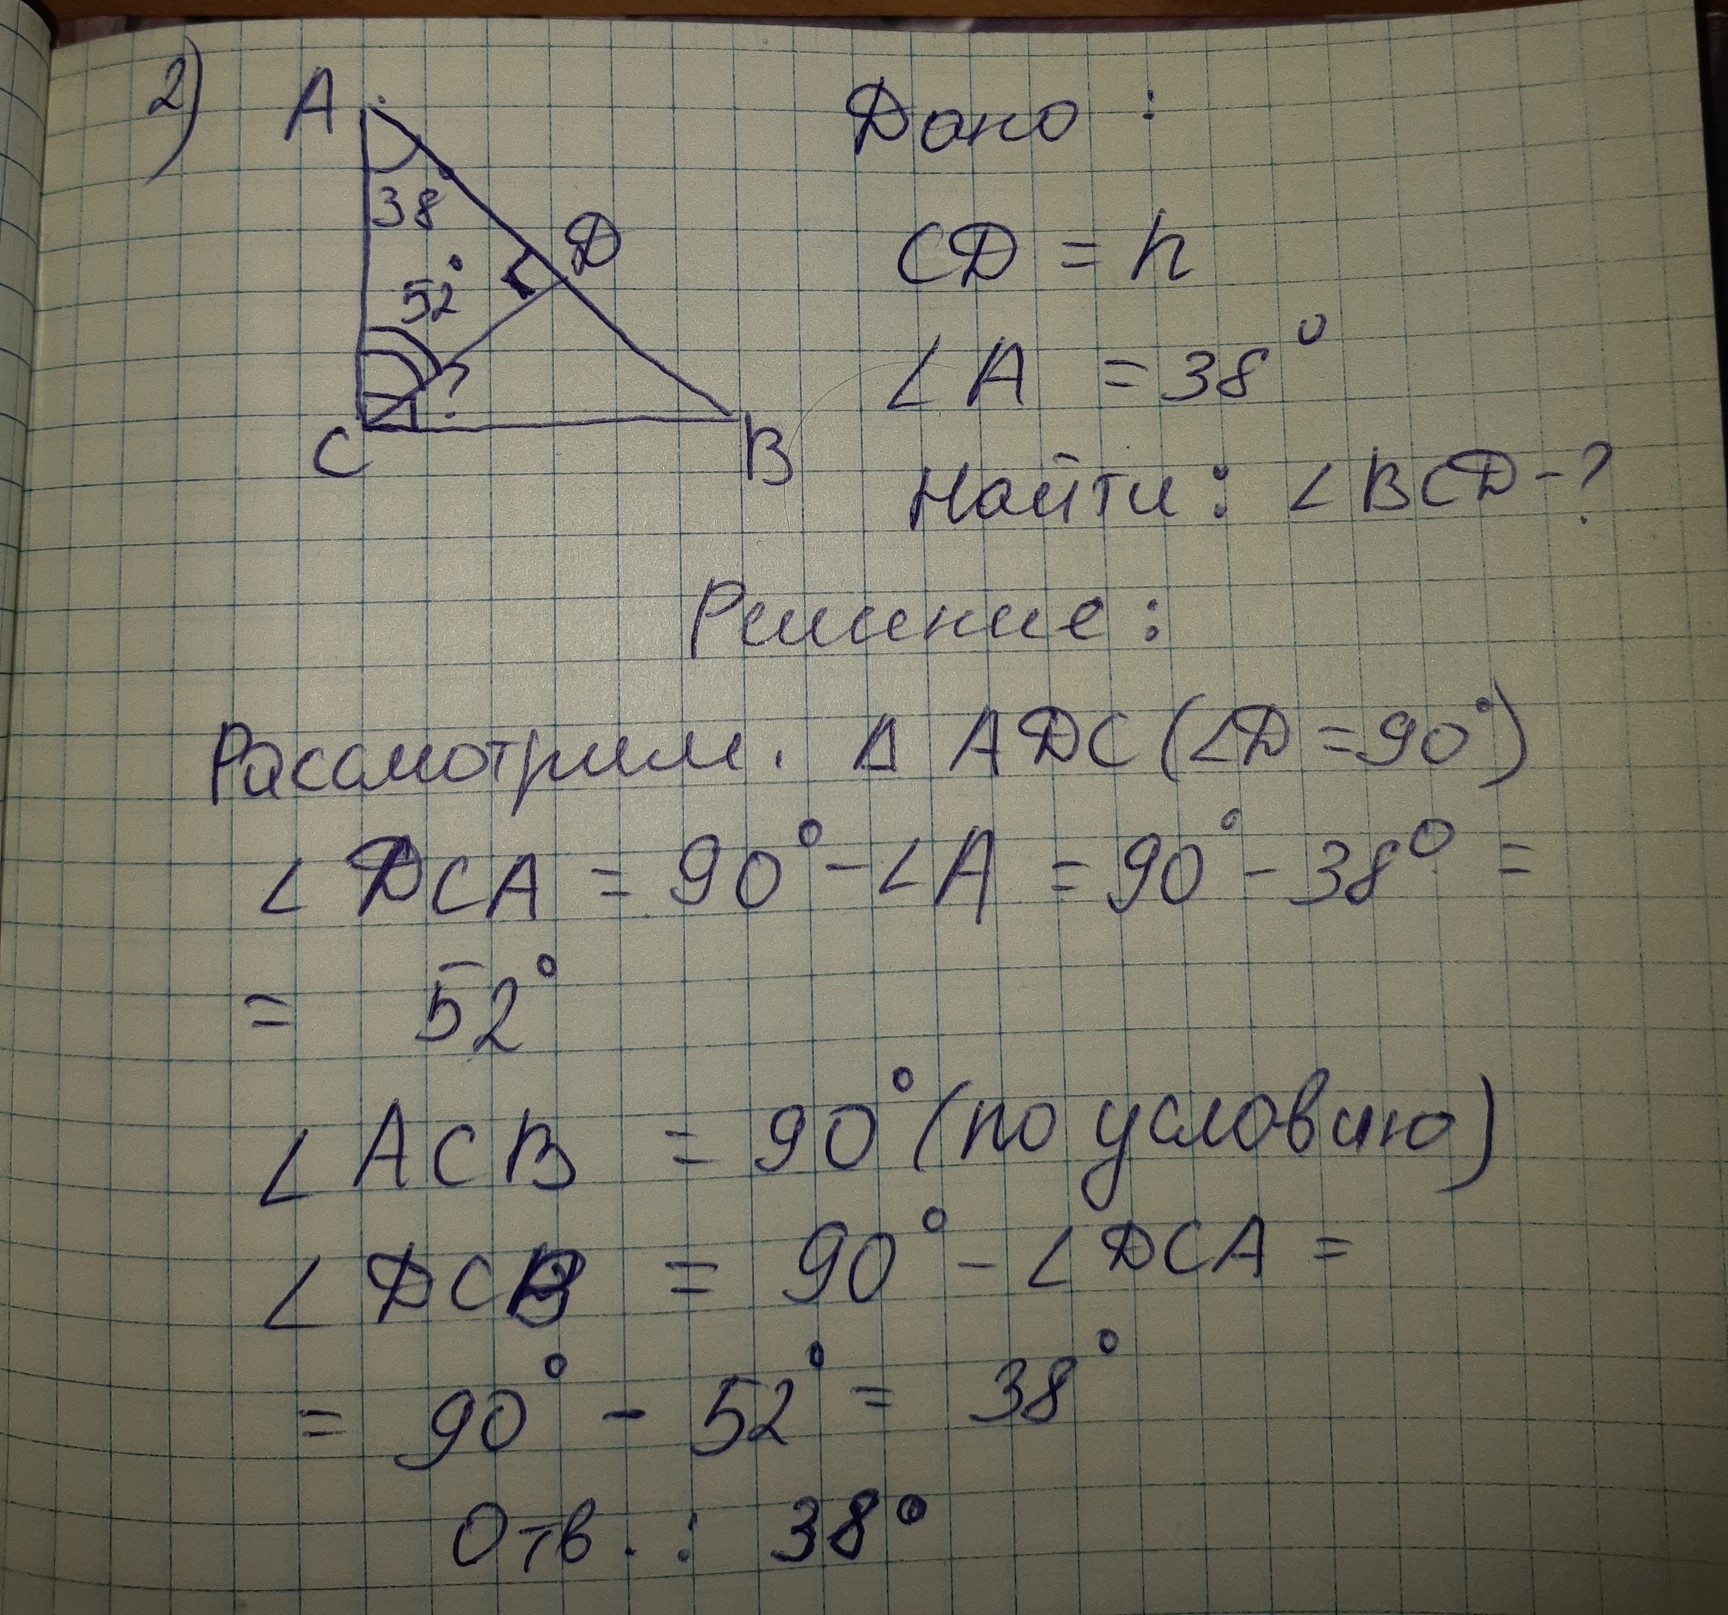 2)
A
38
52°
D
?
C
B
Дано :
CD = h
∠A = 38°
Найти : ∠BCD - ?
Решение :
Рассмотрим. Δ ADC (∠D = 90°)
∠DCA = 90° - ∠A = 90° - 38° =
= 52°
∠ACB = 90° (по условию)
∠DCB = 90° - ∠DCA =
= 90° - 52° = 38°
Отв. : 38°